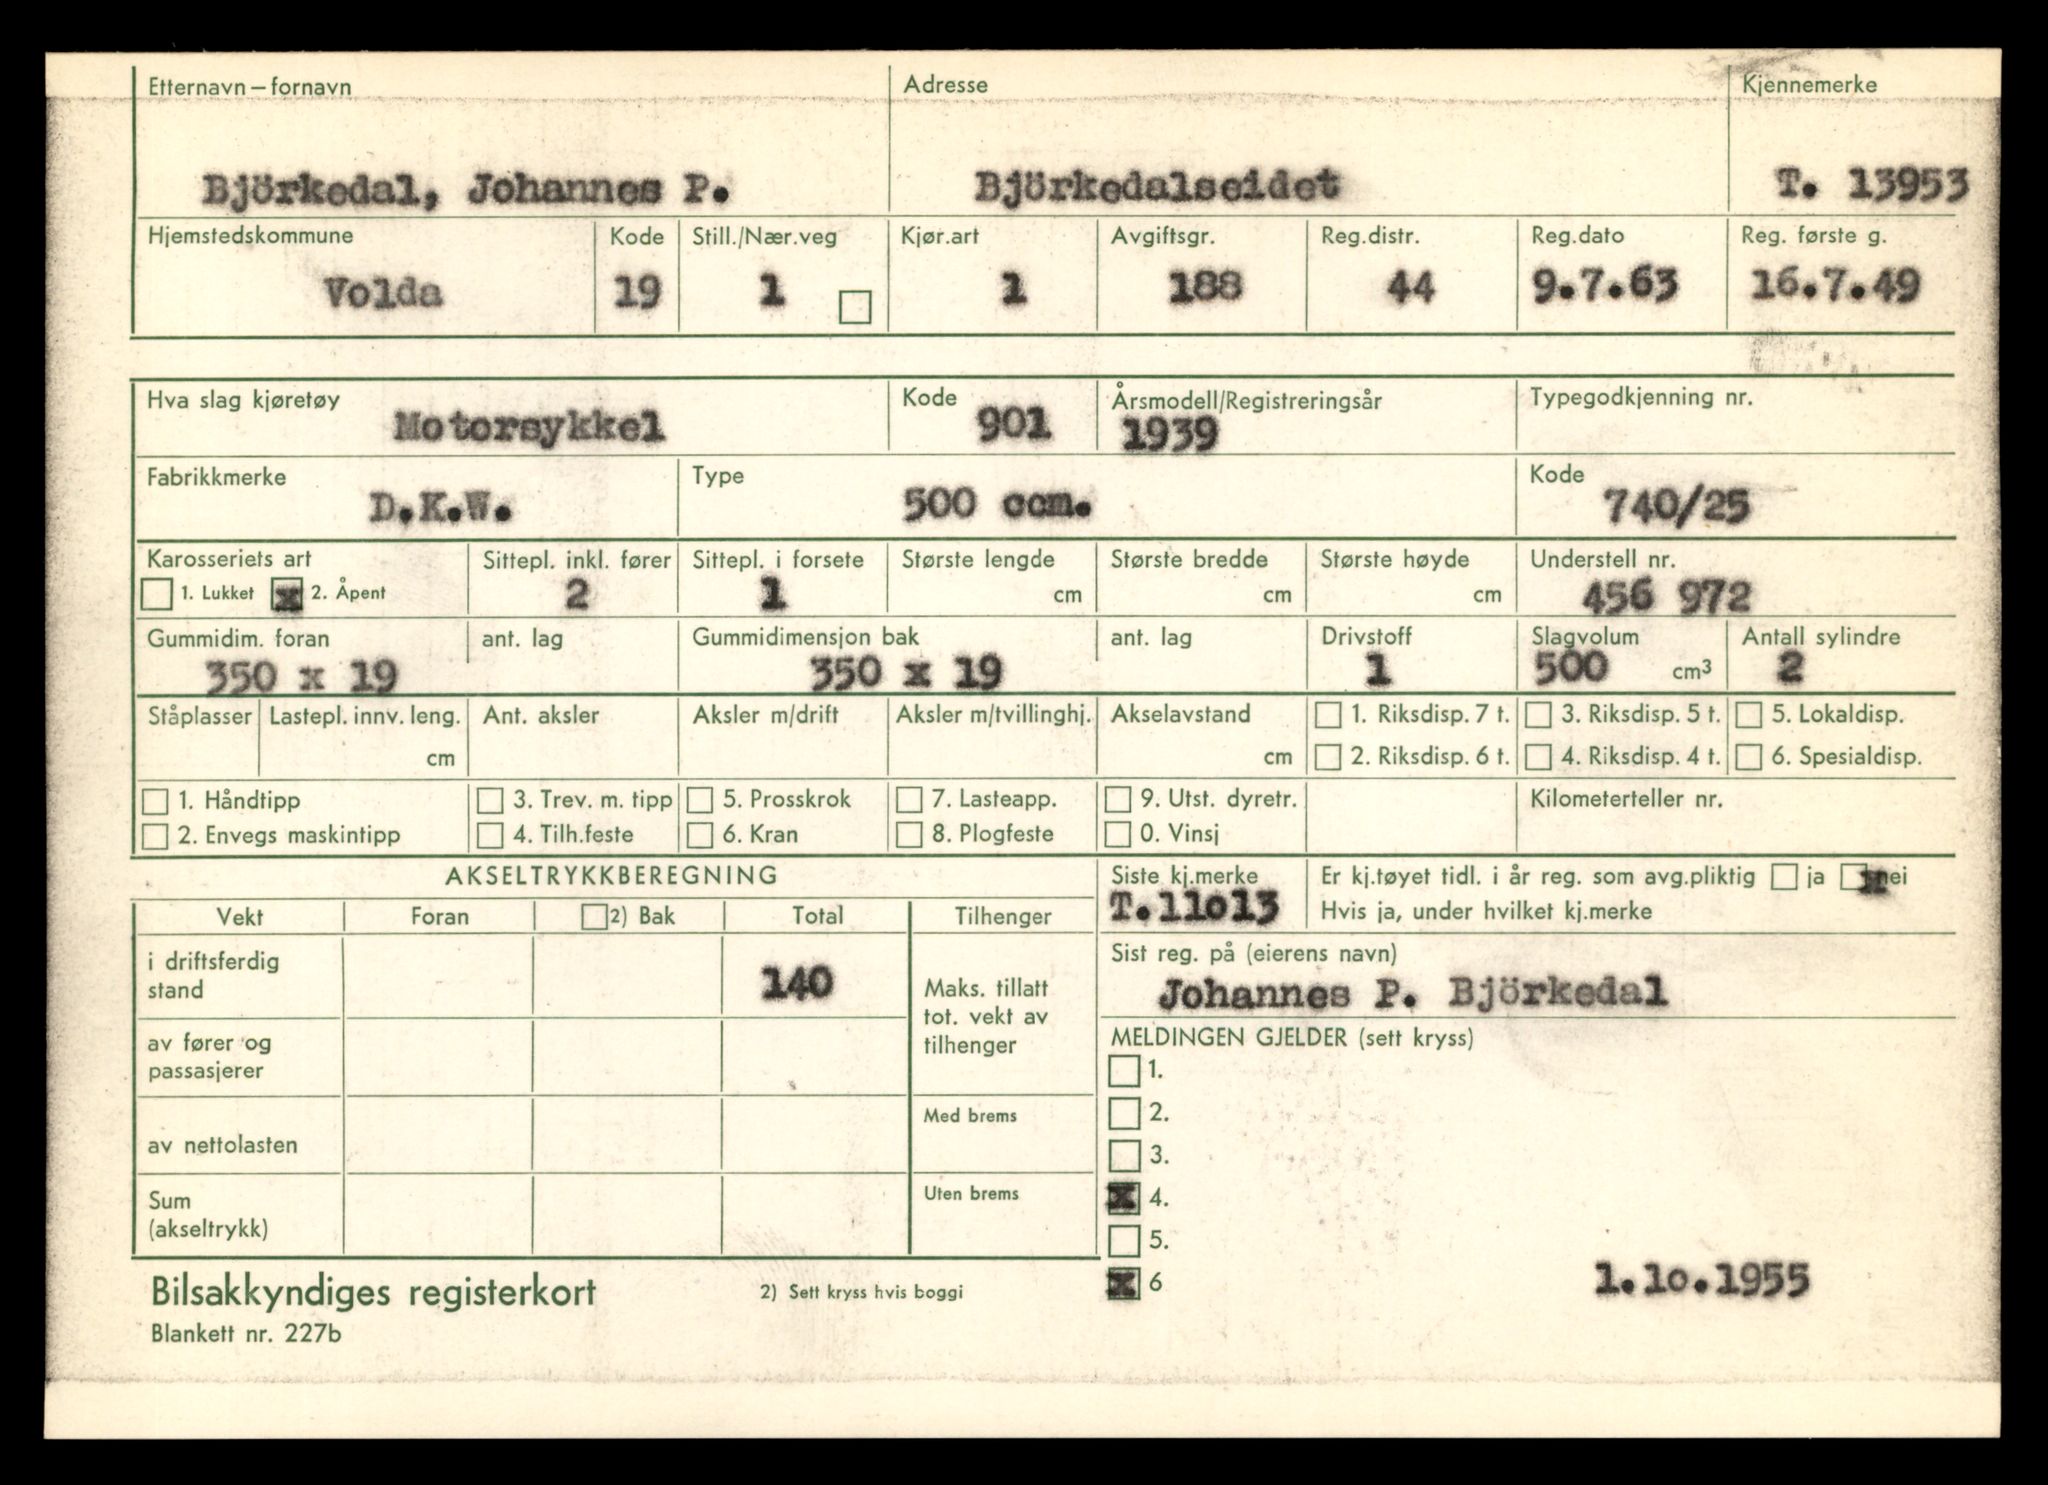 Etternavn – fornavn Adresse Kjennemerke
Björkedal, Johannes P. Björkedalseidet T. 13953
Hjemstedskommune Kode Still./Nær.veg Kjør.art Avgiftsgr. Reg.distr. Reg.dato Reg. første g.
Volda 19 1 1 188 44 9.7.63 16.7.49
Hva slag kjøretøy Kode Årsmodell/Registreringsår Typegodkjenning nr.
Motorsykkel 901 1939
Fabrikkmerke Type Kode
D.K.W. 500 ccm. 740/25
Karosseriets art Sittepl. inkl. fører Sittepl. i forsete Største lengde Største bredde Største høyde Understell nr.
1. Lukket x 2. Åpent 2 1 cm cm cm 456 972
Gummidim. foran ant. lag Gummidimensjon bak ant. lag Drivstoff Slagvolum Antall sylindre
350 x 19 350 x 19 1 500 cm³ 2
Ståplasser Lastepl. innv. leng. Ant. aksler Aksler m/drift Aksler m/tvillinghj. Akselavstand 1. Riksdisp. 7 t. 3. Riksdisp. 5 t. 5. Lokaldisp.
cm cm 2. Riksdisp. 6 t. 4. Riksdisp. 4 t. 6. Spesialdisp.
1. Håndtipp 3. Trev. m. tipp 5. Prosskrok 7. Lasteapp. 9. Utst. dyretr. Kilometerteller nr.
2. Envegs maskintipp 4. Tilh.feste 6. Kran 8. Plogfeste 0. Vinsj
AKSELTRYKKBEREGNING Siste kj.merke Er kj.tøyet tidl. i år reg. som avg.pliktig ja x nei
T.11013 Hvis ja, under hvilket kj.merke
Vekt Foran 2) Bak Total Tilhenger
Sist reg. på (eierens navn)
i driftsferdig
stand 140
Johannes P. Björkedal
Maks. tillatt
tot. vekt av
tilhenger
MELDINGEN GJELDER (sett kryss)
av fører og
passasjerer
1.
Med brems 2.
av nettolasten 3.
Uten brems x 4.
Sum
(akseltrykk)
5.
x 6 1.10.1955
Bilsakkyndiges registerkort 2) Sett kryss hvis boggi
Blankett nr. 227b